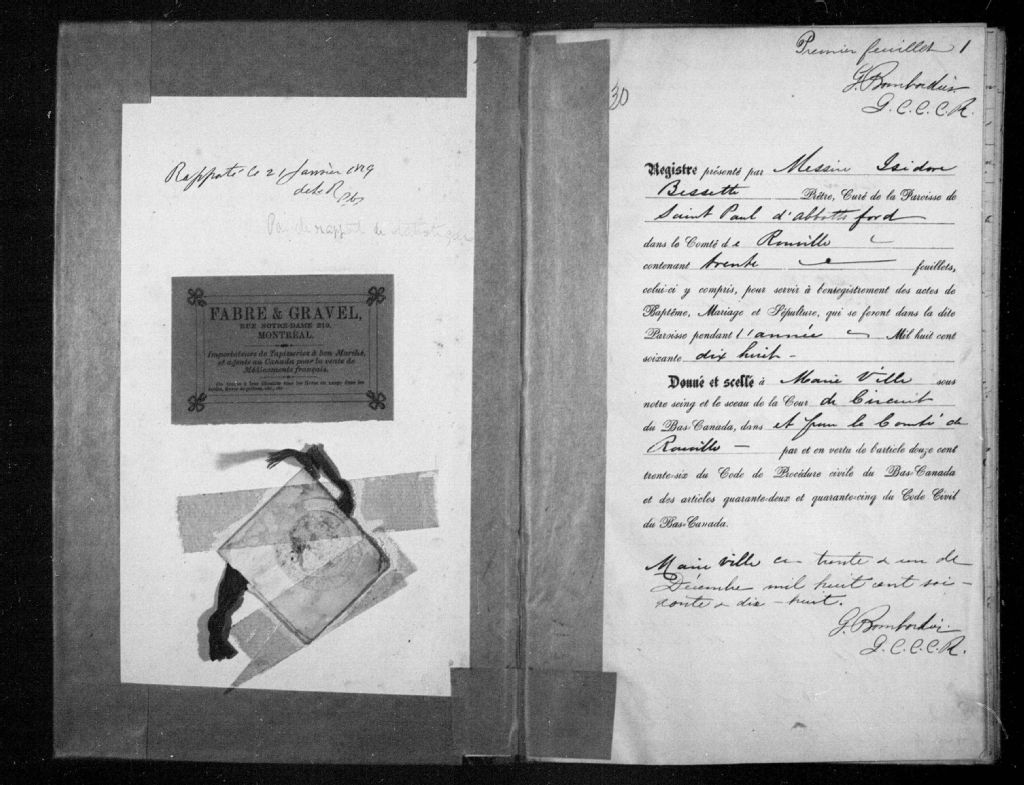 Rapporté le 21 Janvier 1879
FABRE & GRAVEL,
RUE NOTRE-DAME 219,
MONTREAL.
Importateurs de Tapisseries à bon Marché,
et agents au Canada pour la vente de
Médicaments français.
30
Premier feuillet 1
G. Bombardier
G.C.C.C.R.
Registre présenté par Messire Isidore
Bessette Prêtre, Curé de la Paroisse de
Saint Paul d'abbottsford
dans le Comté de Rouville
contenant trente feuillets,
celui-ci y compris, pour servir à l'enregistrement des actes de
Baptême, Mariage et Sépulture, qui se feront dans la dite
Paroisse pendant l'année Mil huit cent
soixante dix huit -
Donné et scellé à Marie Ville sous
notre seing et le sceau de la Cour de Circuit
du Bas-Canada, dans et pour le Comté de
Rouville - par et en vertu de l'article douze cent
trente-six du Code de Procédure civile du Bas-Canada
et des articles quarante-deux et quarante-cinq du Code Civil
du Bas-Canada.
Marie ville ce trente & un de
Décembre mil huit cent soi-
xante & dix-huit.
G. Bombardier
G.C.C.C.R.